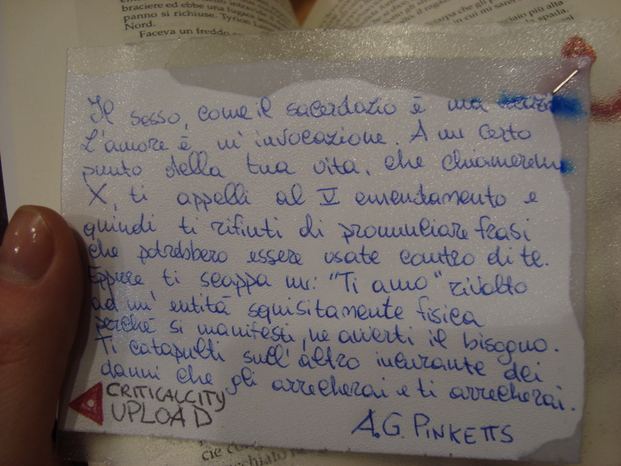 braciere ed ebbe una fugace
panno si richiuse. Tyrion
Nord.
Faceva un freddo
Il sesso, come il sacerdozio è una
L'amore è un'invocazione. A un certo
punto della tua vita, che chiameremo
X, ti appelli al V emendamento e
quindi ti rifiuti di pronunciare frasi
che potrebbero essere usate contro di te.
Eppure ti scappa un: "Ti amo" rivolto
ad un'entità squisitamente fisica
perché si manifesti, ne avverti il bisogno.
Ti catapulti sull'altro incurante dei
danni che gli arrecherai e ti arrecherai.
CRITICALCITY
UPLOAD
A.G. PINKETTS